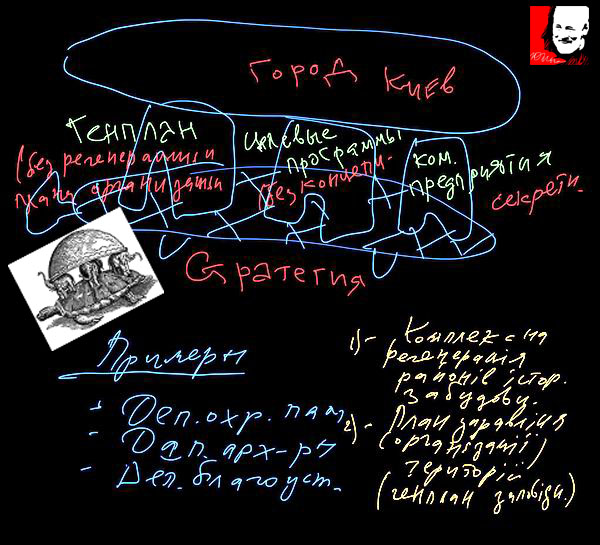 Город Киев
Генплан
(без регенерации и
плана организации
целевые
программы
без концепц-
ком.
предприятия
секретн.
Стратегия
Примеры
- Деп. охр. пам.
- Деп. арх-ры
- Деп. благоуст.
1) - Комплексна
регенерація
районів істор.
забудови.
2) - План
(організації)
території
(генплан заповідн.)